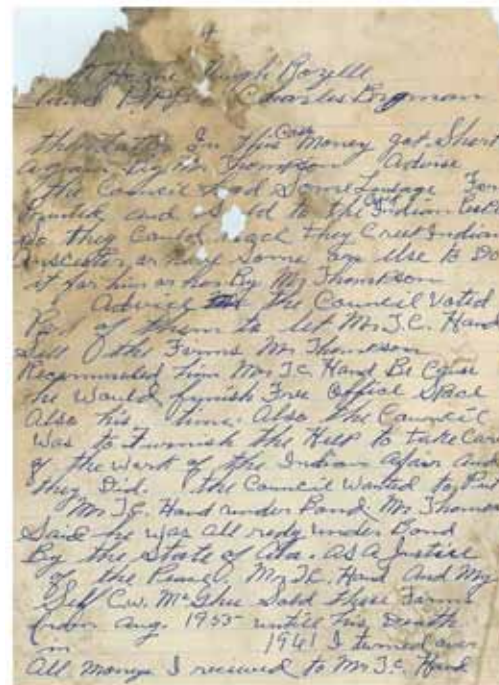 4
Horne Hugh Rozelle
Charles Bergman
in this Case Money got Short
again by Mr. Thompson Advise
the Council had Some Lineage Forms
Printed and Sold to the Indian People
So they Could trace they Creek Indian
Ancester or have Some one Else to Do
it for him or her By Mr Thompson
Advice the Council Voted
Part of them to let Mr J.C. Hand
Sell the Forms Mr Thompson
Recommended him Mr J.C. Hand Be Cause
he Would furnish Free Office Space
Also his time. Also the Council
Was to Furnish the Help to take Care
of the Work of the Indian Afair and
they Did. the Council Wanted to Put
Mr J.C. Hand under Bond Mr. Thomson
Said he was all redy under Bond
By the State of Ala. as a Justice
of the Peace. Mr J.C. Hand And My
Self C.W. McGhee Sold these Forms
from Aug. 1955 untill his Death
in 1941 I turned over
All Money I received to Mr J.C. Hand